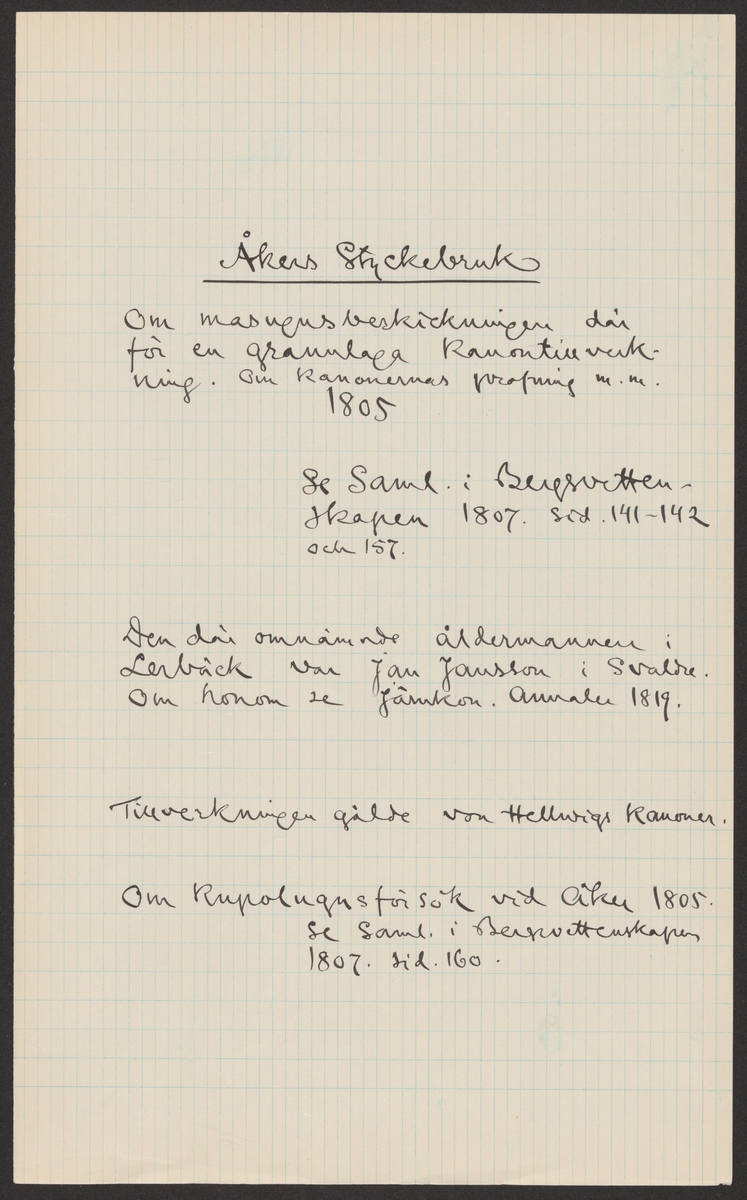 Åkers Styckebruk
Om masugnsbeskickningen där
för en grannlaga kanontillverk-
ning. Om kanonernas profning m.m.
1805
Se Saml. i Bergsvetten-
skapen 1807. Sid. 141-142
och 157.
Den där omnämnde åldermannen i
Lerbäck var Jan Jansson i Svaldre.
Om honom se Järnkon. Annaler 1819.
Tillverkningen gälde von Hellwigs kanoner.
Om Kupolugnsförsök vid Åker 1805.
Se Saml. i Bergsvettenskapen
1807. sid. 160.